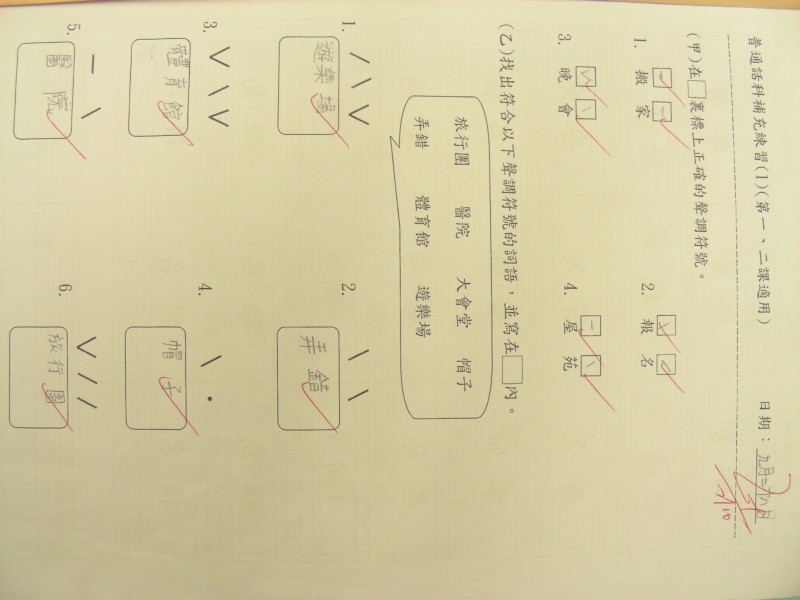 普通話科補充練習(1)(第一、二課適用) 日期：九月二十八日
(甲)在□裏標上正確的聲調符號。
1. 搬家 2. 報名
3. 晚會 4. 屋苑
(乙)找出符合以下聲調符號的詞語，並寫在□內。
旅行團 醫院 大會堂 帽子
弄錯 體育館 遊樂場
1. ˊ ˋ ˇ 2. ˋ ˋ
遊樂場 弄錯
3. ˇ ˋ ˇ 4. ˋ ·
體育館 帽子
5. ˉ ˋ 6. ˇ ˊ ˊ
醫院 旅行團